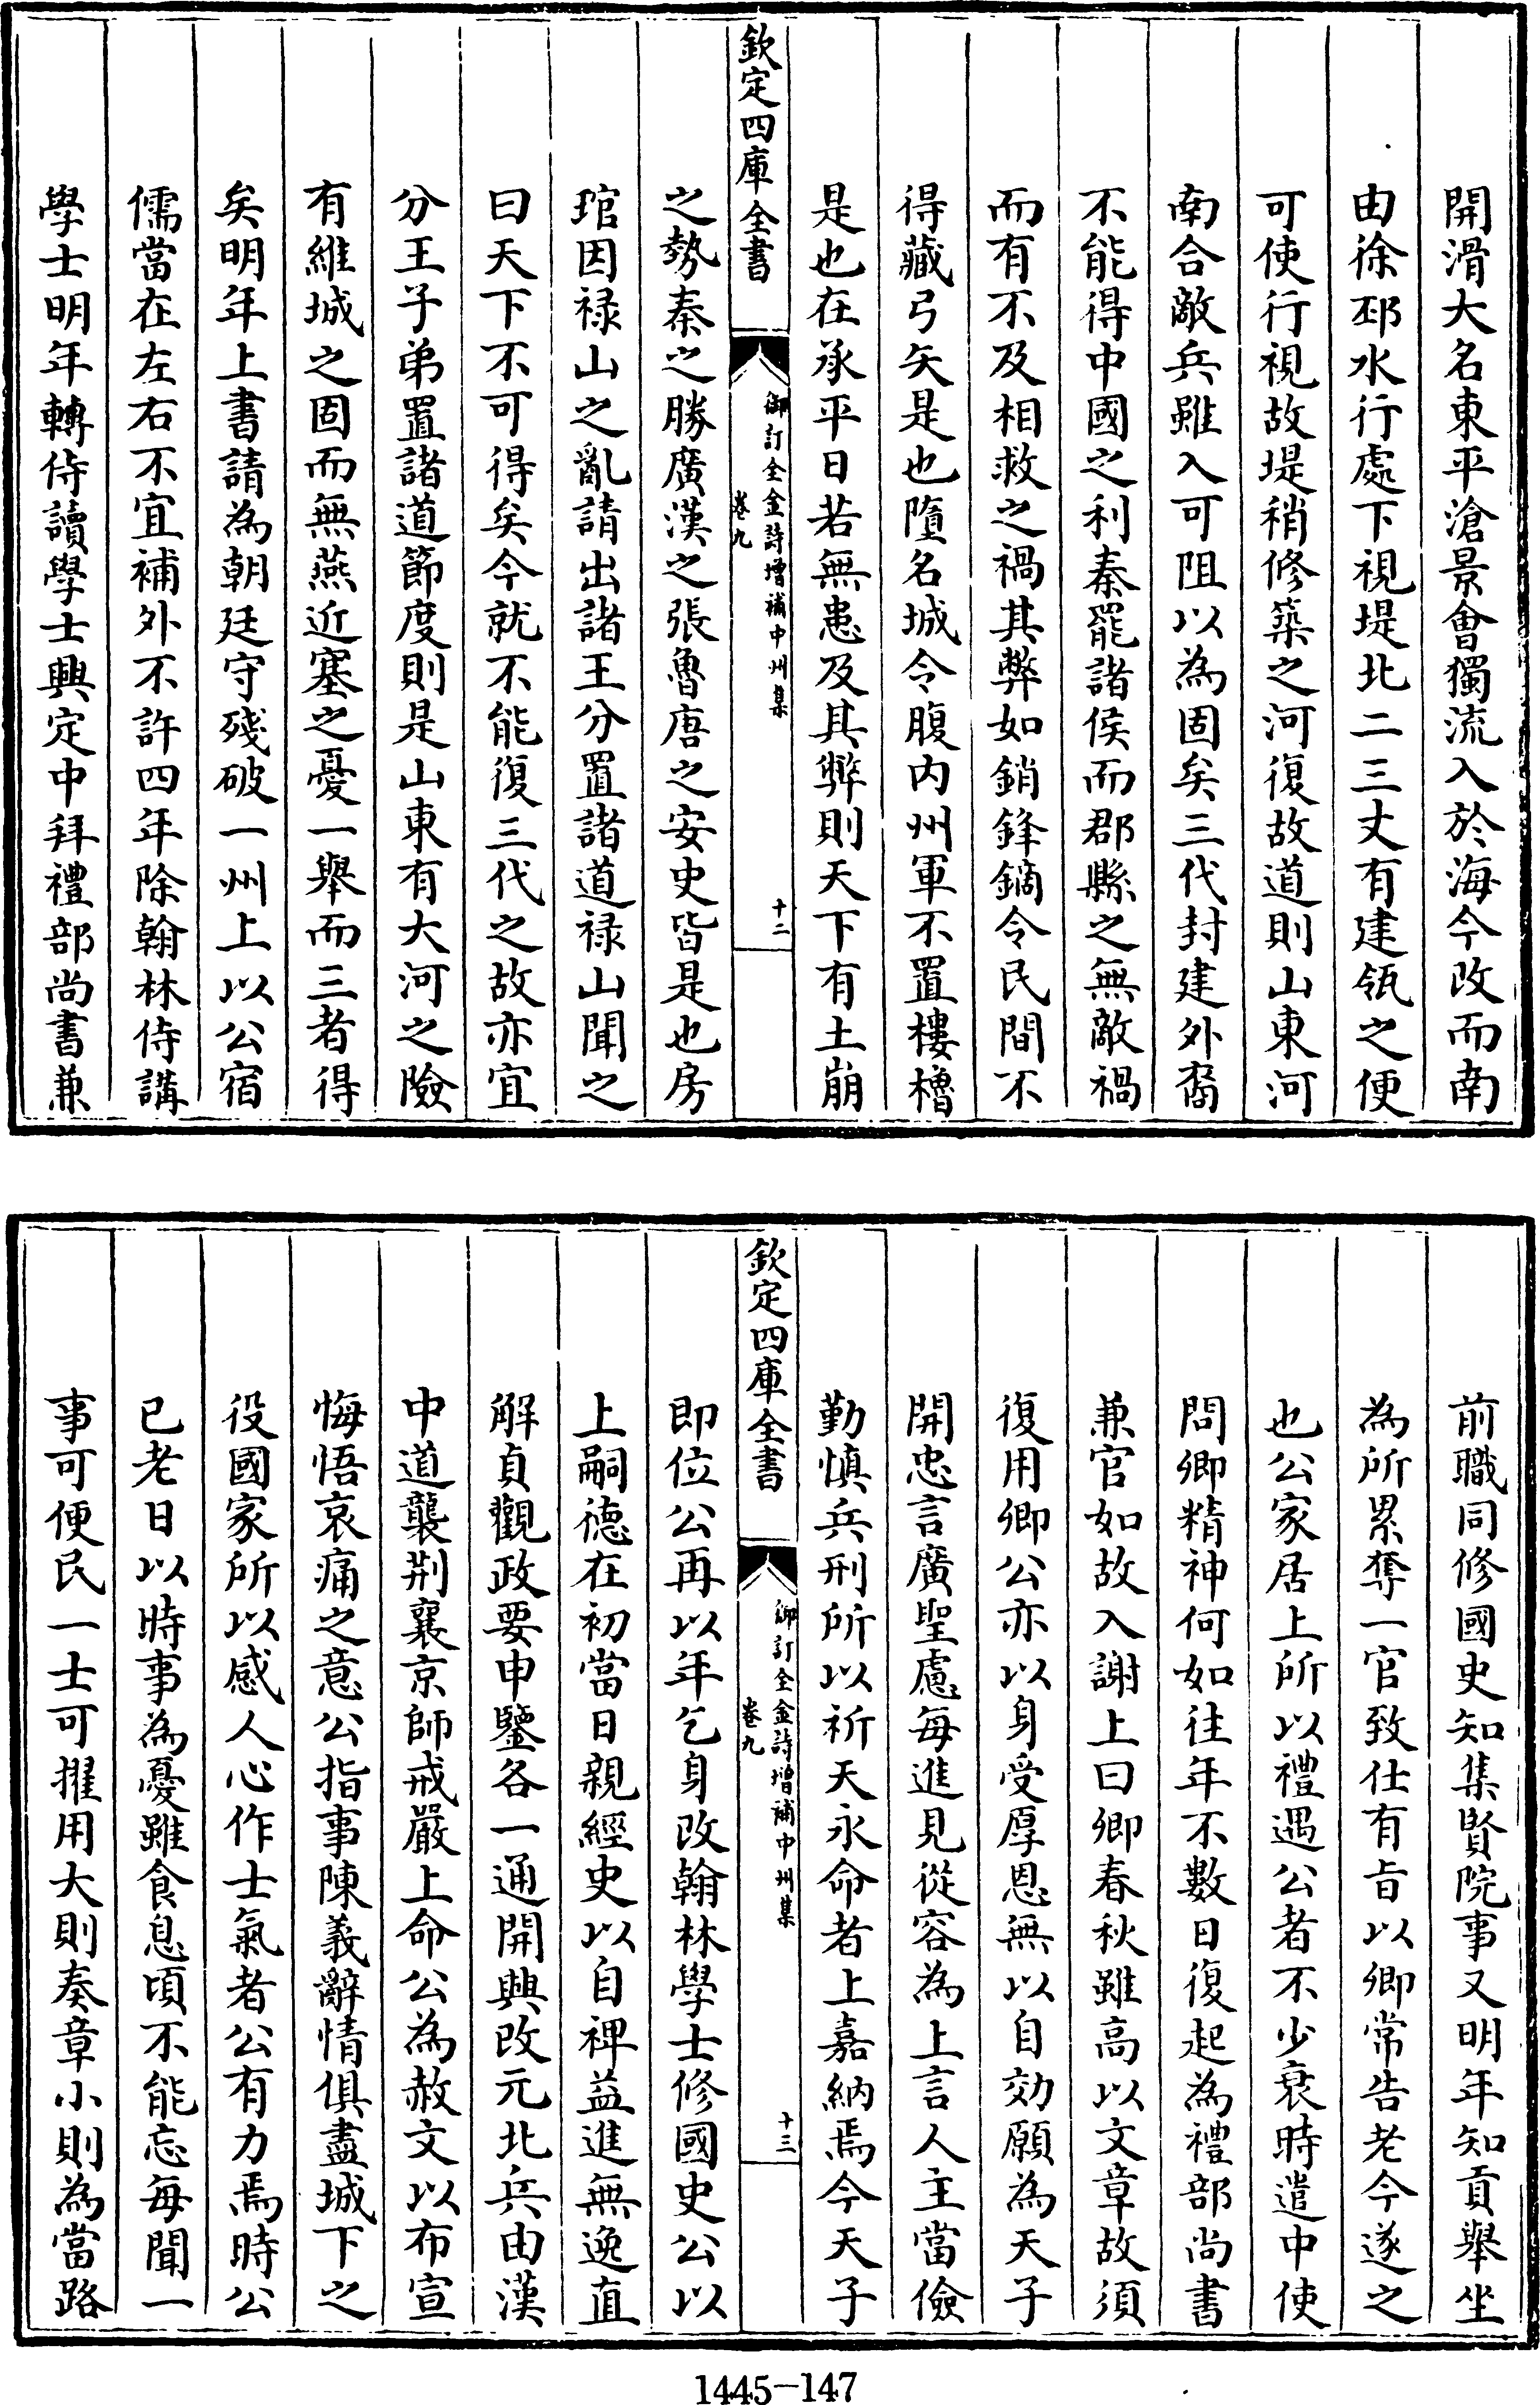 開滑大名東平滄景會獨流入於海今改而南
由徐邳水行處下視堤北二三丈有建瓴之便
可使行視故堤稍修築之河復故道則山東河
南合敵兵雖入可阻以為固矣三代封建外裔
不能得中國之利秦罷諸侯而郡縣之無敵禍
而有不及相救之禍其弊如銷鋒鏑令民間不
得藏弓矢是也墮名城令腹内州軍不置樓櫓
是也在承平日若無患及其弊則天下有土崩
欽定四庫全書
御訂全金詩增補中州集
卷九
十二
之勢秦之勝廣漢之張魯唐之安史皆是也房
琯因禄山之亂請出諸王分置諸道禄山聞之
曰天下不可得矣今就不能復三代之故亦宜
分王子弟置諸道節度則是山東有大河之險
有維城之固而無燕近塞之憂一舉而三者得
矣明年上書請為朝廷守殘破一州上以公宿
儒當在左右不宜補外不許四年除翰林侍講
學士明年轉侍讀學士興定中拜禮部尚書兼
前職同修國史知集賢院事又明年知貢舉坐
為所累奪一官致仕有旨以卿常告老今遂之
也公家居上所以禮遇公者不少衰時遣中使
問卿精神何如往年不數日復起為禮部尚書
兼官如故入謝上曰卿春秋雖高以文章故須
復用卿公亦以身受厚恩無以自効願為天子
開忠言廣聖慮每進見從容為上言人主當儉
勤慎兵刑所以祈天永命者上嘉納焉今天子
欽定四庫全書
御訂全金詩增補中州集
卷九
十三
即位公再以年乞身改翰林學士修國史公以
上嗣德在初當日親經史以自裨益進無逸直
解貞觀政要申鑒各一通開興改元北兵由漢
中道襲荆襄京師戒嚴上命公為赦文以布宣
悔悟哀痛之意公指事陳義辭情俱盡城下之
役國家所以感人心作士氣者公有力焉時公
已老日以時事為憂雖食息頃不能忘每聞一
事可便民一士可擢用大則奏章小則為當路
1445-147